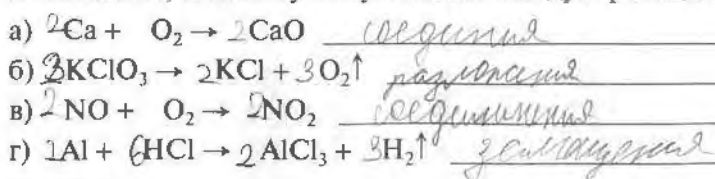 а) 2Ca + O₂ → 2CaO соединия
б) 2KClO₃ → 2KCl + 3O₂↑ разложения
в) 2NO + O₂ → 2NO₂ соедининения
г) 2Al + 6HCl → 2AlCl₃ + 3H₂↑ замещения